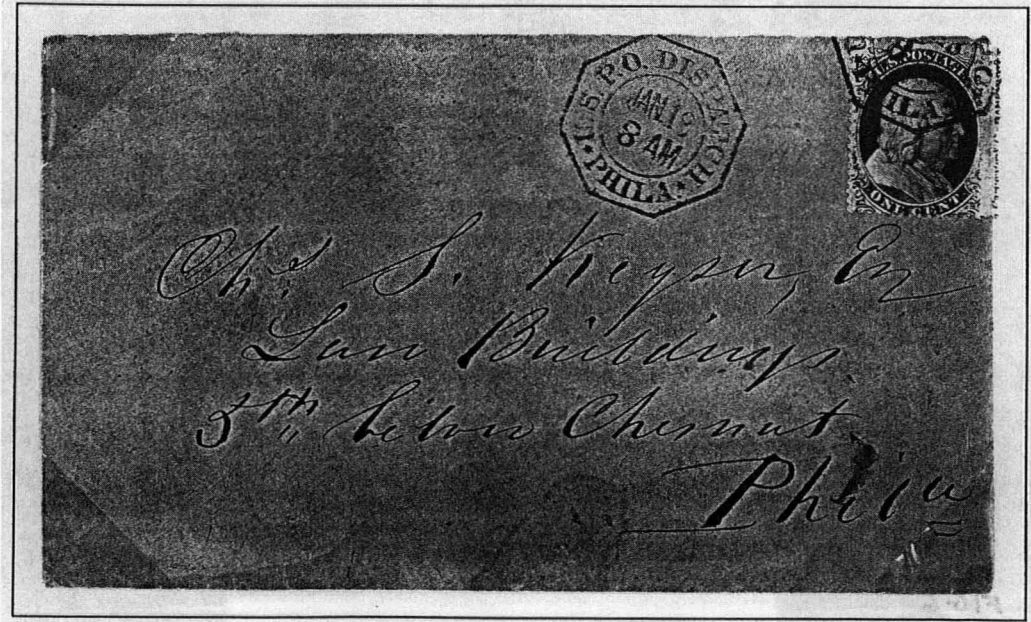 U.S. P.O. DISPATCH
JAN 19
8 AM
• PHILA •
U.S. POSTAGE
HILA
ONE CENT
Chs. S. Keyser, Esq
Law Buildings.
5th below Chesnut
Phila